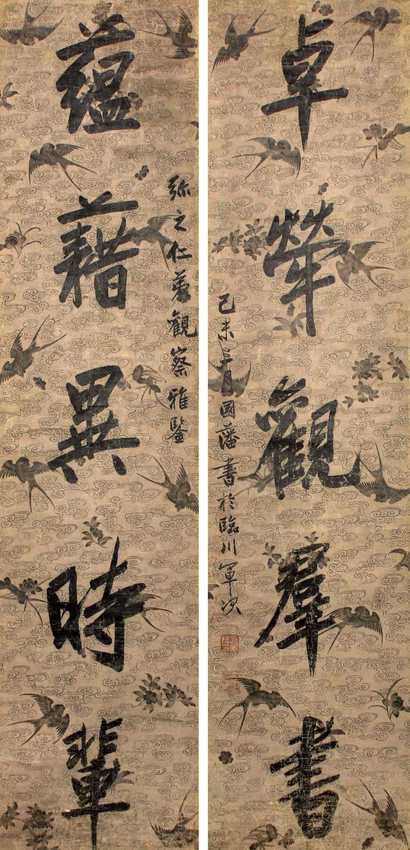 卓犖觀羣書
己未月國藩書於臨川軍次
弥之仁弟觀察雅鑒
藴藉異時輩